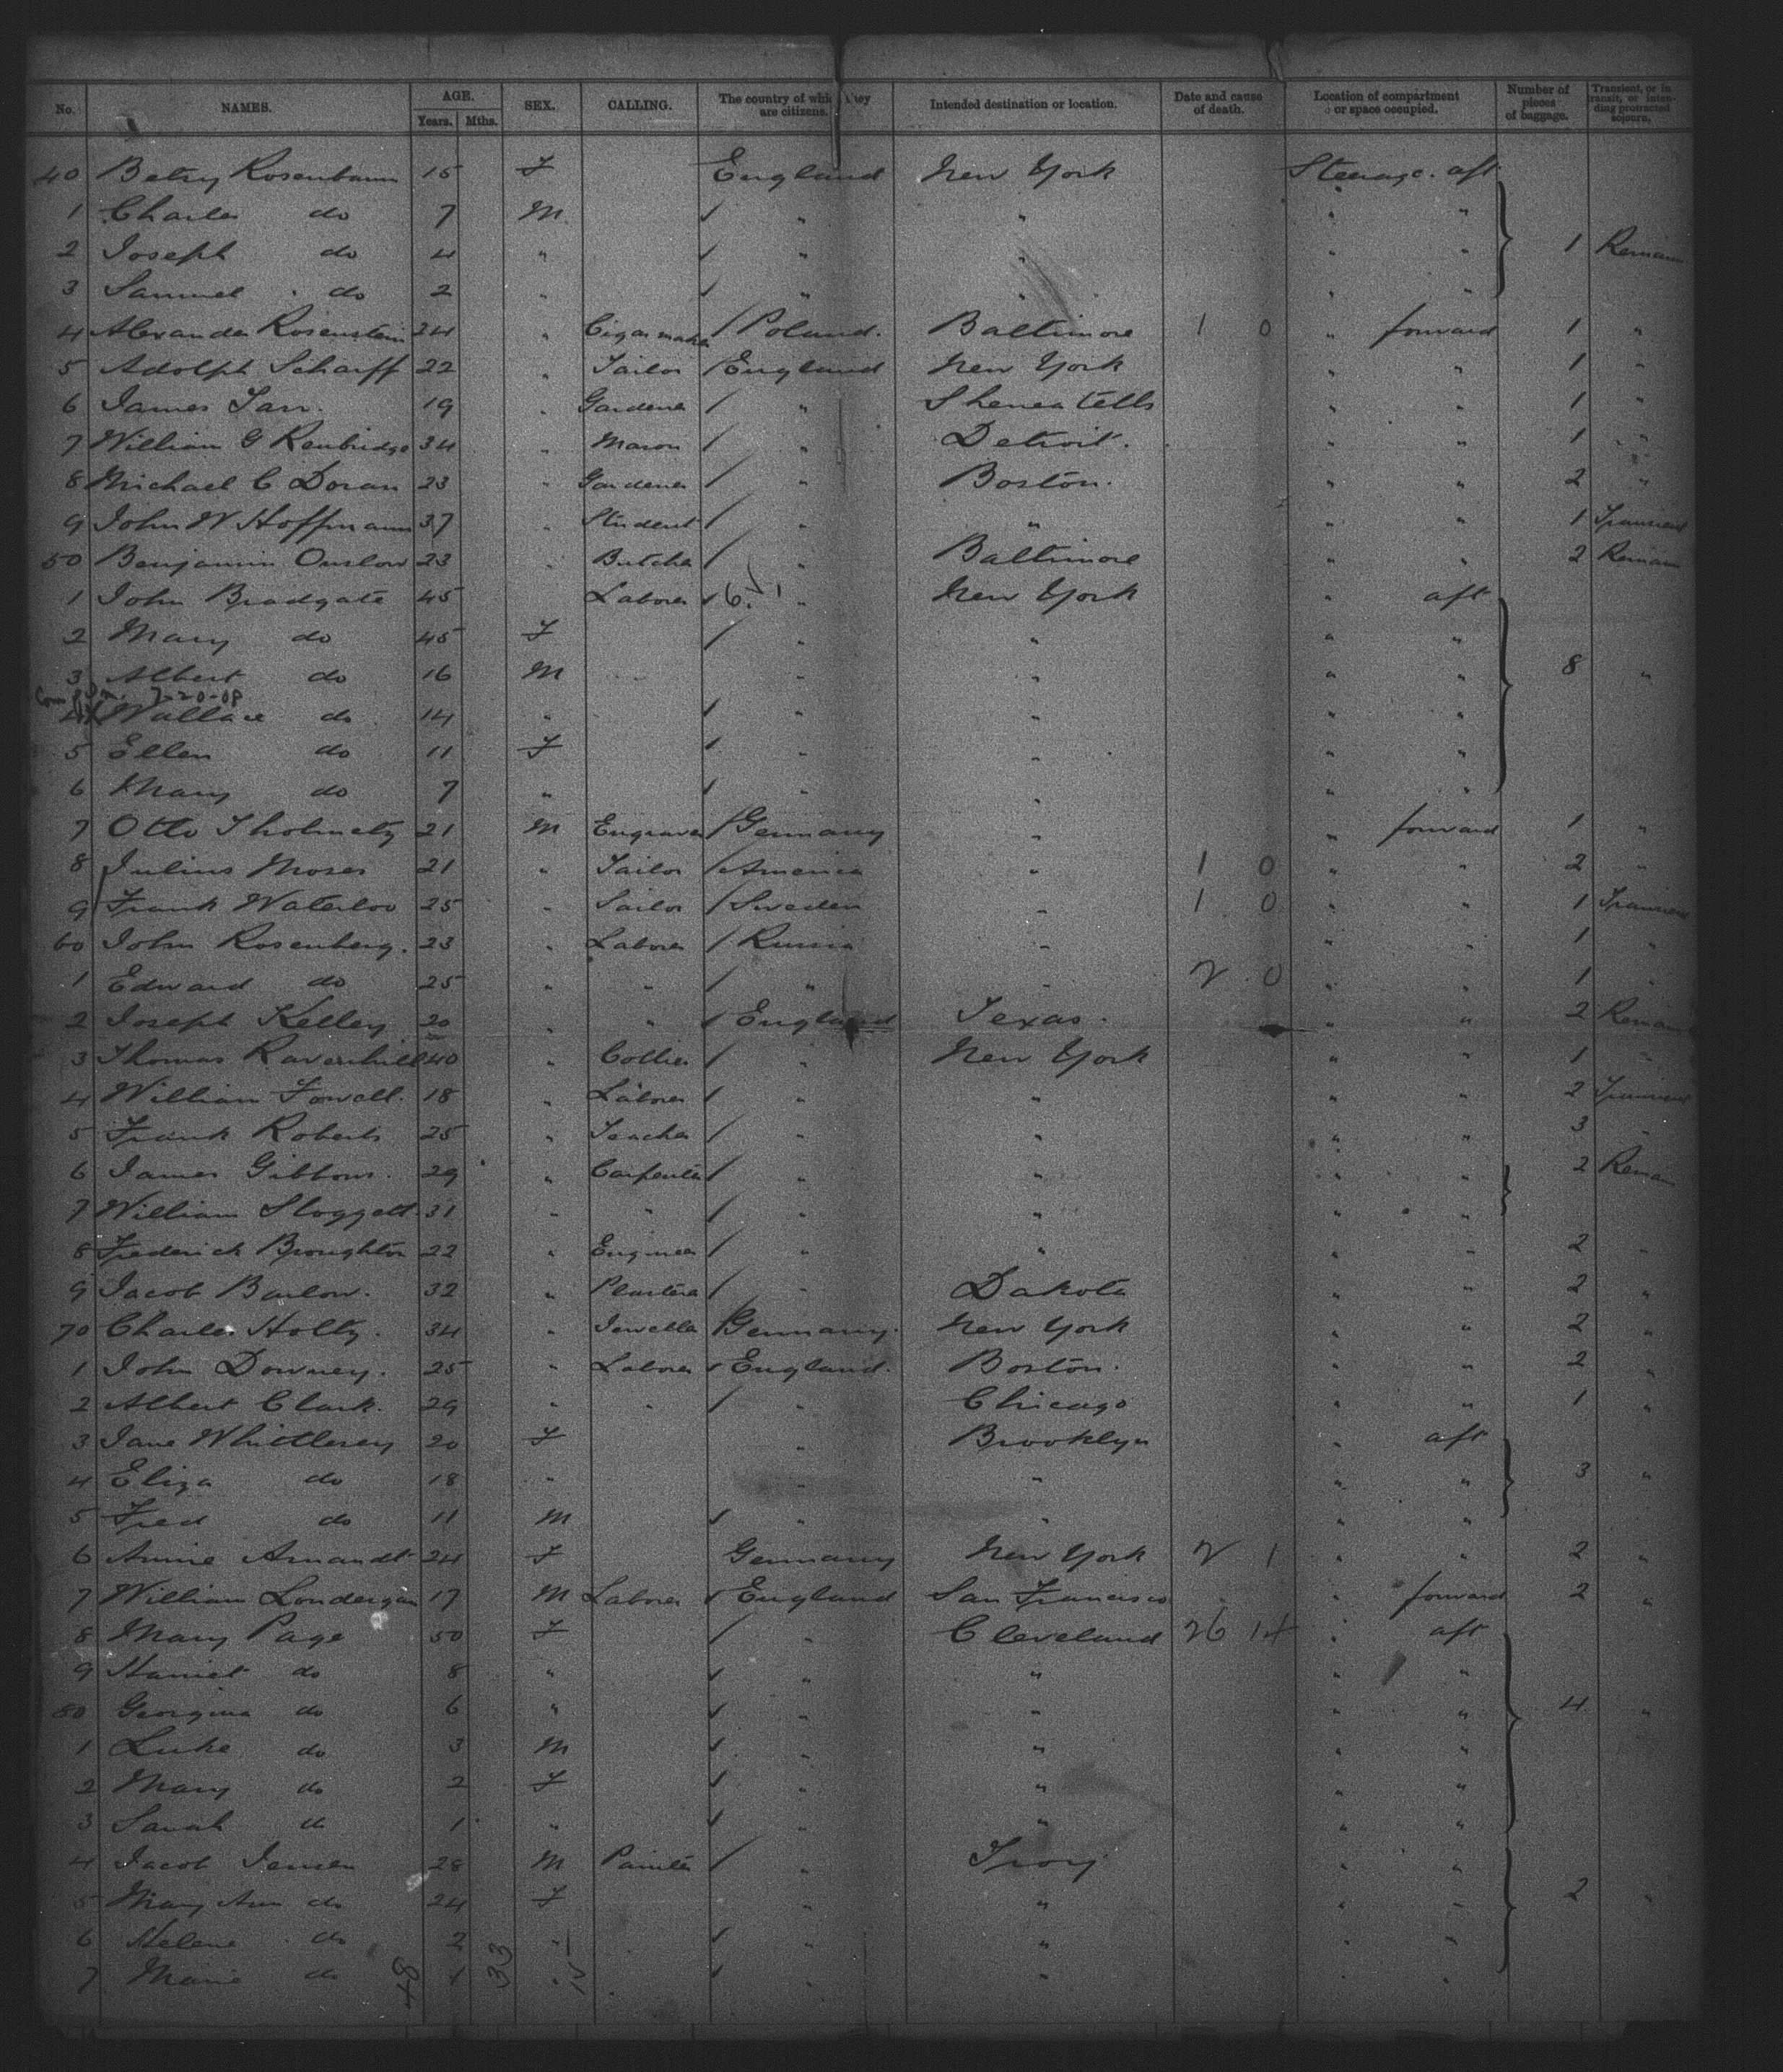 No. NAMES. AGE. Years. Mths. SEX. CALLING. The country of which they are citizens. Intended destination or location. Date and cause of death. Location of compartment or space occupied. Number of pieces of baggage. Transient, or in transit, or intending protracted sojourn.
40 Betsy Rosenbaum 15 F England New York Steerage aft
1 Charles do 7 M " " " "
2 Joseph do 4 " " " " " 1 Remain
3 Samuel do 2 " " " " "
4 Alexander Rosenstein 24 " Cigar maker Poland. Baltimore 1 0 " forward 1 "
5 Adolph Scharff 22 " Tailor England New York " " 1 "
6 James 19 " Gardener " " " 1 "
7 William G 34 " Mason " Detroit. " " 1 "
8 Michael C Doran 23 " Gardener " Boston. " " 2 "
9 John W Hoffmann 37 " Student " " " " 1 Transient
50 Benjamin Onslow 23 " Butcher " Baltimore " " 2 Remain
1 John Bradgate 45 Laborer 6 " New York " aft
2 Mary do 45 F " " " "
3 Albert do 16 M " " " " 8 "
7-20-08
4 X Wallace do 14 " " " " "
5 Ellen do 11 F " " " "
6 Mary do 7 " " " " "
7 Otto 21 M Engraver Germany " " forward 1 "
8 Julius Moses 21 " Tailor America " 1 0 " " 2 "
9 Frank Waterloo 25 " Sailor Sweden " 1 0 " " 1 Transient
60 John Rosenberg. 23 " Laborer Russia " " " 1 "
1 Edward do 25 " " " " 2 0 " " 1 "
2 Joseph Kelley 20 " " England Texas. " " 2 Remain
3 Thomas Ravenhill 40 " Collier " New York " " 1 "
4 William Fowell. 18 " Laborer " " " " 2 Transient
5 Frank Roberts 25 " Teacher " " " " 3 "
6 James Gibbons. 29 " Carpenter " " " " 2 Remain
7 William Sloggett 31 " " " " " "
8 Frederick Broughton 22 " Engineer " " " " 2 "
9 Jacob Barlow. 32 " Plasterer " Dakota " " 2 "
70 Charles Holtz. 34 " Jeweller Germany. New York " " 2 "
1 John Downey. 25 " Laborer England. Boston. " " 2 "
2 Albert Clark. 29 " " " Chicago " " 1 "
3 Jane Whittlesey 20 F " Brooklyn " aft
4 Eliza do 18 " " " " " 3 "
5 Fred do 11 M " " " "
6 Annie Arnandt 24 F Germany New York 2 1 " " 2 "
7 William Londergan 17 M Laborer England San Francisco " forward 2 "
8 Mary Page 50 F " Cleveland 26 14 " aft
9 Harriet do 8 " " " " "
80 Georgina do 6 " " " " " 4 "
1 Luke do 3 M " " " "
2 Mary do 2 F " " " "
3 Sarah do 1 " " " " "
4 Jacob Jensen 28 M Painter " Troy " "
5 Mary Ann do 24 F " " " " 2 "
6 Helene do 2 " " " " "
7 Marie do 1 " " " "
48 33 15